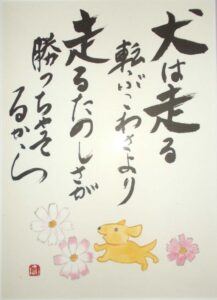 犬は走る
転ぶこわさより
走るたのしさが
勝っちゃってるから